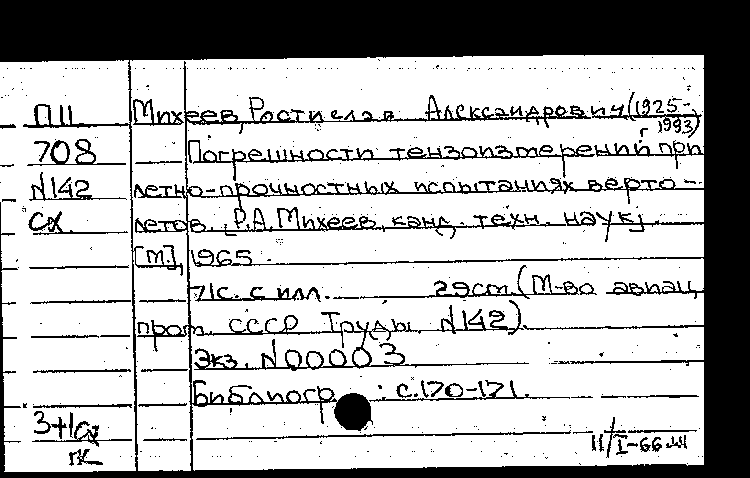 П11 Михеев, Ростислав Александрович (1925-
1993)
708 Погрешности тензоизмерений при
N142 летно-прочностных испытаниях верто-
Сх. летов. [Р.А. Михеев, канд. техн. наук].
[М.], 1965.
71с. с илл. 29см. (М-во авиац.
пром. СССР Труды N142).
Экз. N00003
Библиогр.: с.170-171.
3+1сх
пк
11/I-66